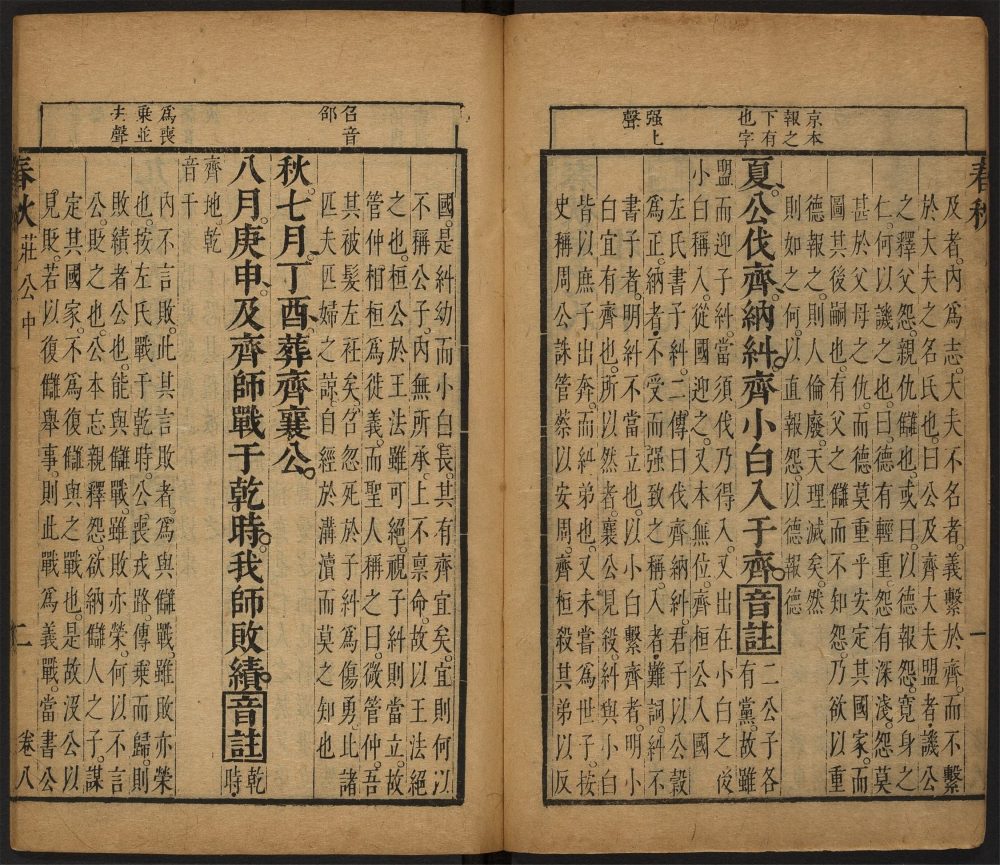 春秋
一
京本
報之
下有
也字
强上
聲
及者。內爲志。大夫不名者。義繫於齊。而不繫
於大夫之名氏也。曰公及齊大夫盟者。譏公
之釋父怨。親仇讎也。或曰。以德報怨。寬身之
仁。何以譏之也。曰。德有輕重。怨有深淺。怨莫
甚於父母之仇。而德莫重乎安定其國家。而
圖其後嗣也。有父之讎而不知怨。乃欲以重
德報之。則人倫廢。天理滅矣。然
則如之何。以直報怨。以德報德
夏。公伐齊。納糾。齊小白入于齊。音註 二公子各
有黨。故雖
盟而迎子糾。當須伐乃得入。又出在小白之後
小白稱入。從國迎之。又本無位。齊桓公入國
左氏書子糾。二傳曰伐齊納糾。君子以公穀
爲正。納者。不受而强致之稱。入者。難詞。糾不
書子者。明糾不當立也。以小白繫齊者。明小
白宜有齊也。所以然者。襄公見殺。糾與小白
皆以庶子出奔。而糾弟也。又未嘗爲世子。按
史稱周公誅管蔡以安周。齊桓殺其弟以反
召音
邵
爲喪
乗並
去聲
國。是糾幼而小白長。其有齊宜矣。宜則何以
不稱公子。內無所承。上不禀命。故以王法絕
之也。桓公於王法雖可絕。視子糾則當立。故
管仲相桓爲徙義。而聖人稱之曰。微管仲。吾
其被髮左衽矣。召忽死於子糾爲傷勇。此諸
匹夫匹婦之諒。自經於溝瀆而莫之知也
秋。七月。丁酉。葬齊襄公。
八月。庚申。及齊師戰于乾時。我師敗績。音註 乾時
齊地乾
音干
內不言敗。此其言敗者。爲與讎戰。雖敗亦榮
也。按左氏戰于乾時。公喪戎路。傳乗而歸。則
敗績者公也。能與讎戰。雖敗亦榮。何以不言
公。貶之也。公本忘親釋怨。欲納讎人之子。謀
定其國家。不爲復讎與之戰也。是故沒公以
見貶。若以復讎舉事。則此戰爲義戰。當書公
春秋 莊公中 二 卷八